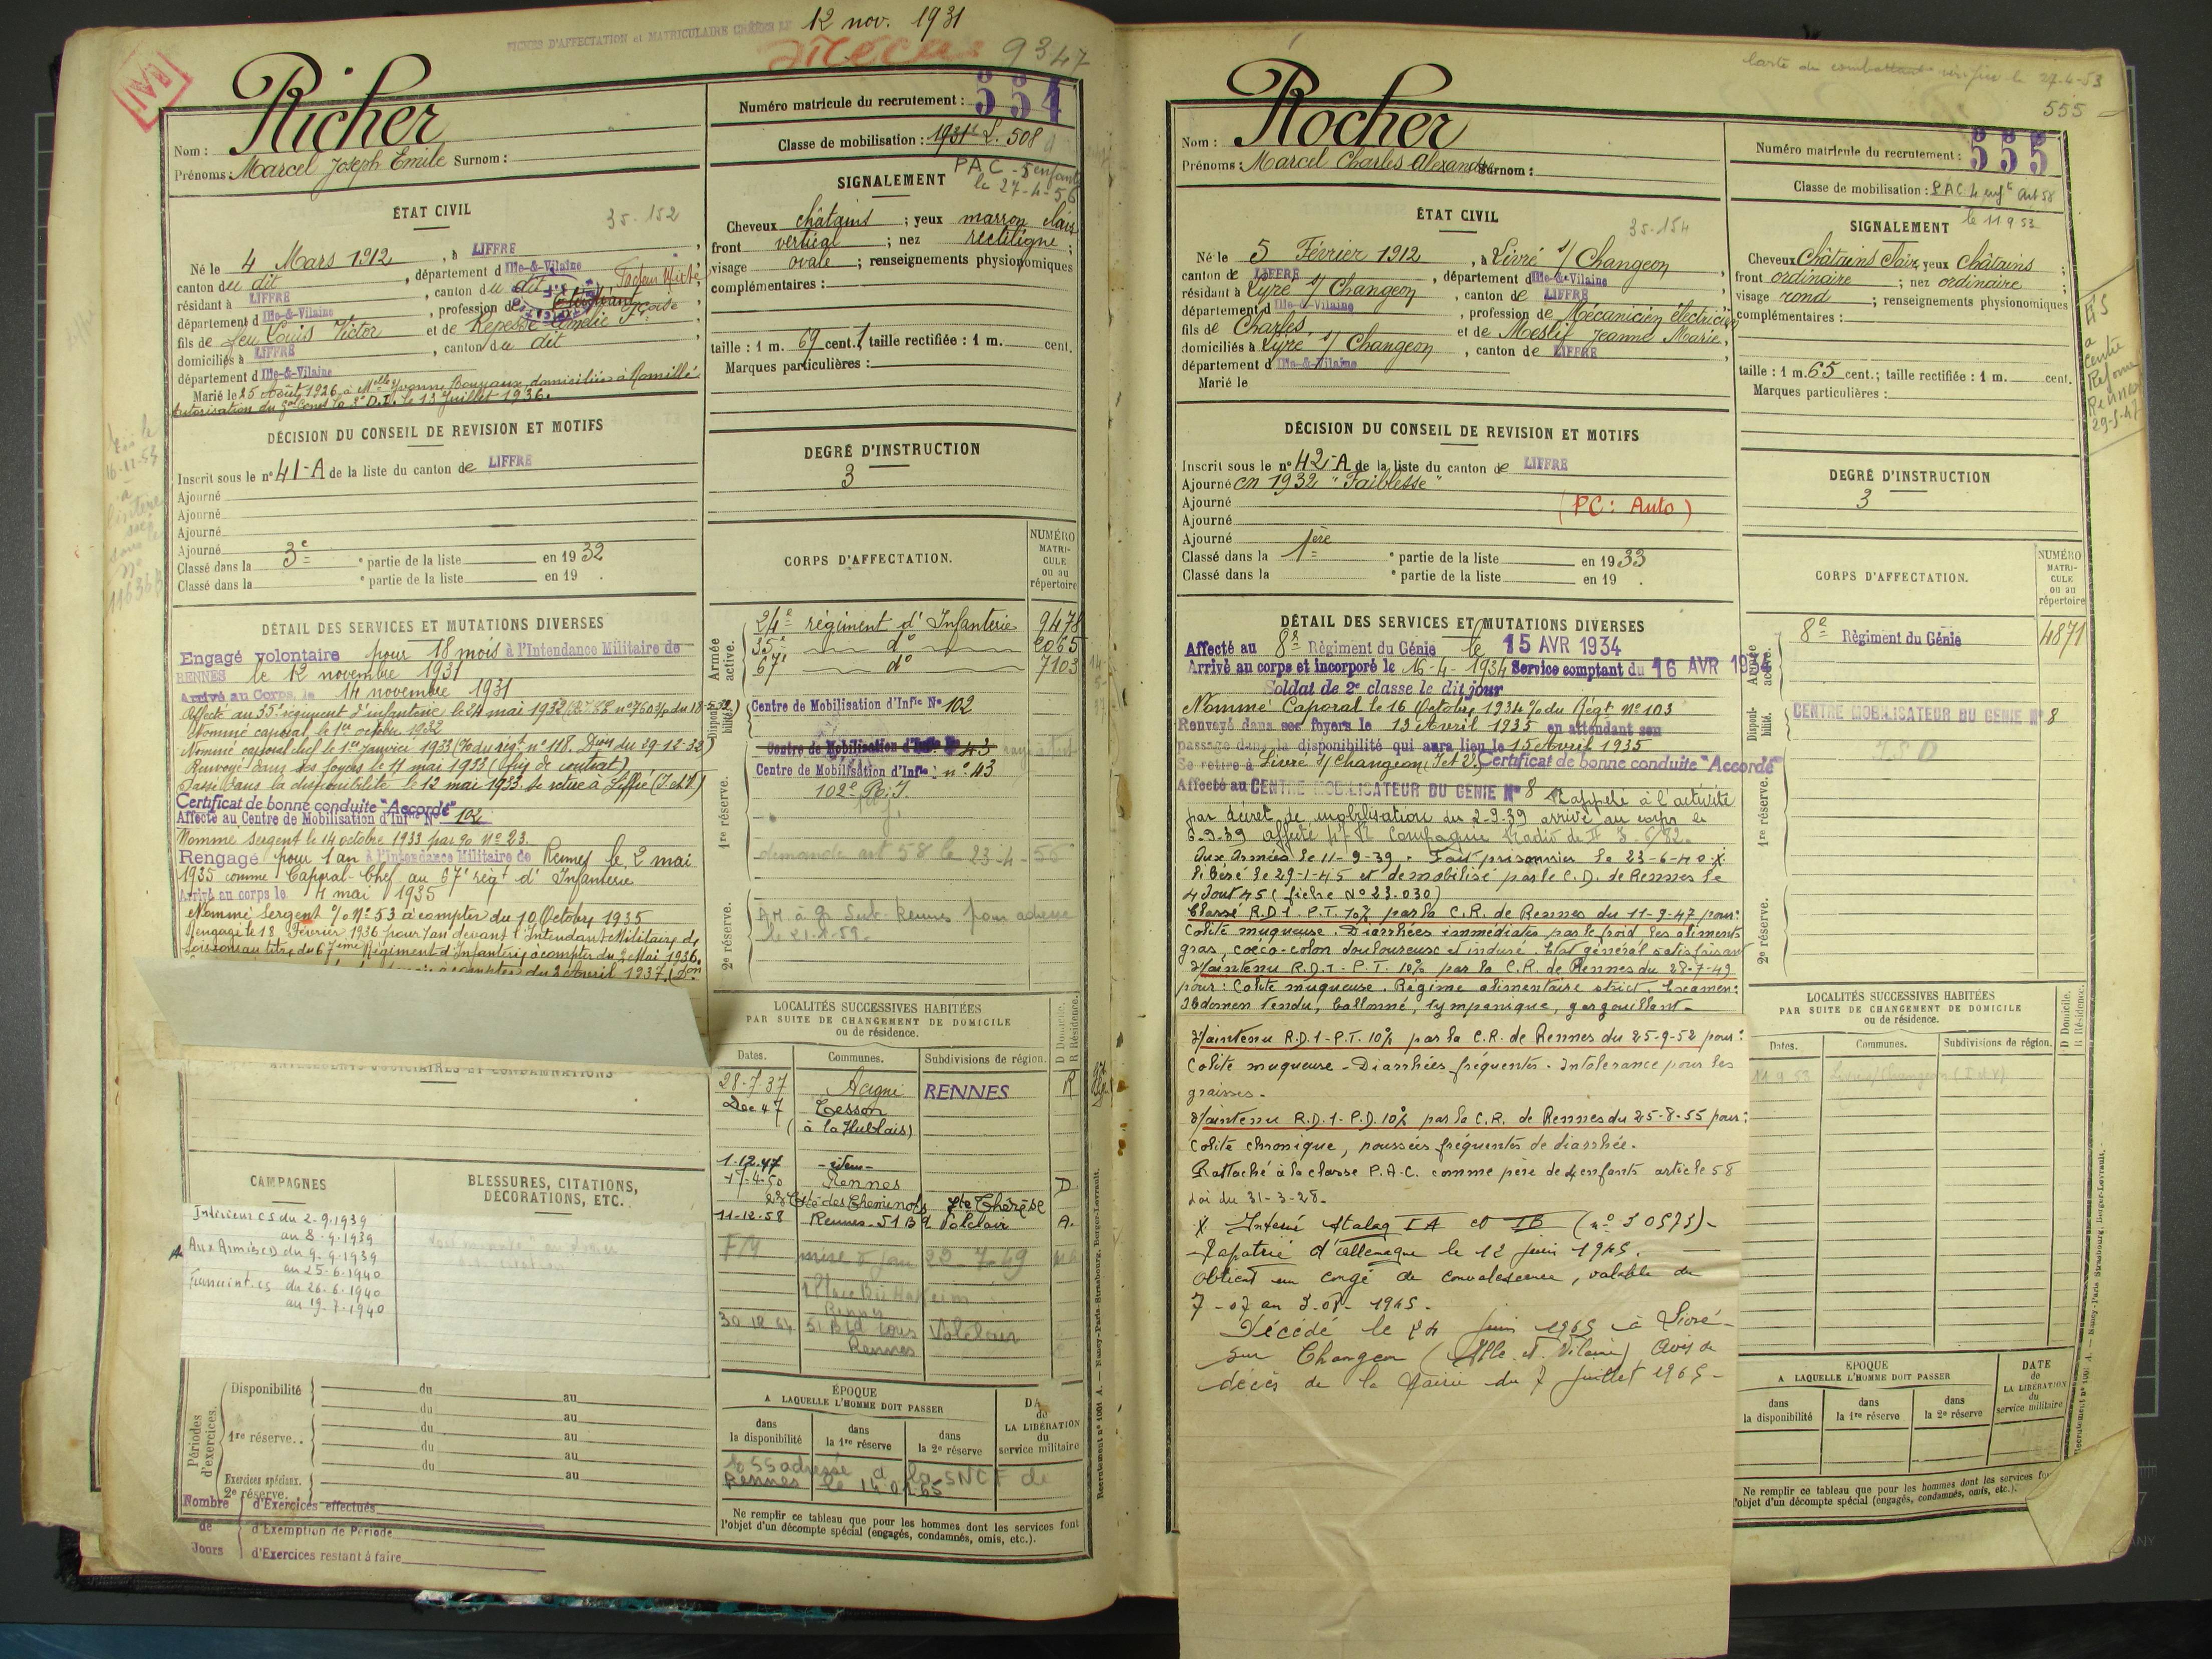 FICHES D'AFFECTATION et MATRICULAIRE CRÉÉES LE 12 nov. 1931
9347
Richer
Nom :
Prénoms : Marcel Joseph Emile Surnom :
Numéro matricule du recrutement : 554
Classe de mobilisation : 1931 L. 508
PAC - 5 enfants
le 27-4-56
ÉTAT CIVIL
35-152
Né le 4 Mars 1912, à LIFFRÉ,
canton du dit, département d Ille-&-Vilaine
résidant à LIFFRÉ, canton du dit
département d Ille-&-Vilaine, profession de
fils de feu Louis Victor et de Repessé Amélie Fçoise
domiciliés à LIFFRÉ, canton du dit
département d Ille-&-Vilaine
Marié le 25 Août 1926 à Melle Yvonne domiciliée à Romillé
Autorisation du Gal Comt la D.I. le 13 Juillet 1936.
SIGNALEMENT
Cheveux châtains ; yeux marron clairs
front vertical ; nez rectiligne ;
visage ovale ; renseignements physionomiques
complémentaires :
taille : 1 m. 69 cent. ; taille rectifiée : 1 m. cent.
Marques particulières :
DÉCISION DU CONSEIL DE REVISION ET MOTIFS
Inscrit sous le n° 41-A de la liste du canton de LIFFRÉ
Ajourné
Ajourné
Ajourné
Ajourné
Classé dans la 3e ° partie de la liste en 1932
Classé dans la ° partie de la liste en 19 .
DEGRÉ D'INSTRUCTION
3
DÉTAIL DES SERVICES ET MUTATIONS DIVERSES
Engagé volontaire pour 18 mois à l'Intendance Militaire de
RENNES le 12 novembre 1931
Arrivé au Corps le 14 novembre 1931
Affecté au 35e régiment d'infanterie le 24 mai 1932
Nommé caporal, le 1er octobre 1932
Nommé caporal chef le 1er janvier 1933 (% du rigt n° 118. Don du 29-12-32)
Renvoyé dans ses foyers le 11 mai 1933 (fin de contrat)
Passé dans la disponibilité le 12 mai 1933. Se retire à Liffré (I et V)
Certificat de bonne conduite "Accordé"
Affecté au Centre de Mobilisation d'Infie N° 102
Nommé sergent le 14 octobre 1933 par % N° 23.
Rengagé pour 1 an à l'Intendance Militaire de Rennes le 2 mai
1935 comme Caporal-Chef au 67e régt d'Infanterie
Arrivé au corps le 4 mai 1935
Nommé Sergent % N° 53 à compter du 10 Octobre 1935
Rengagé le 18 Février 1936 pour 1 an devant l'Intendant Militaire de
Soissons au titre du 67ème Régiment d'Infanterie à compter du 2 Mai 1936.
à compter du 2 Avril 1937. (Don
CORPS D'AFFECTATION.
NUMÉRO MATRICULE ou au répertoire
Armée active.
24e régiment d'Infanterie 9478
35e d° 2065
67e d° 7103
Disponibilité.
Centre de Mobilisation d'Infie N° 102
1re réserve.
Centre de Mobilisation d'Infie N° 43
Centre de Mobilisation d'Infie n° 43
102e R.I.
demande art 58 le 23-4-56
2e réserve.
le 21.1.59.
ANTÉCÉDENTS JUDICIAIRES ET CONDAMNATIONS
CAMPAGNES
Intérieur CS du 2-9-1939
au 8-9-1939
Aux Armées CD du 9-9-1939
au 25-6-1940
du 26-6-1940
au 19-7-1940
BLESSURES, CITATIONS, DÉCORATIONS, ETC.
LOCALITÉS SUCCESSIVES HABITÉES
PAR SUITE DE CHANGEMENT DE DOMICILE
ou de résidence.
D Domicile.
R Résidence.
Dates. Communes. Subdivisions de région.
28-7-37 Acigné RENNES R
Dec 47 Cesson
(à la Hublais)
1-12-47 -idem-
17-4-50 Rennes D
23 Cité des Cheminots Ste Thérèse
11-12-58 Rennes - 51 Bd Volclair A.
mise à jour 22-7-69
Rennes
30 12 64 51 Bld Louis Volclair
Rennes
Périodes d'exercices.
Disponibilité du au
du au
1re réserve.. du au
du au
Exercices spéciaux. du au
2e réserve.
Nombre de Jours
d'Exercices effectués
d'Exemption de Période
d'Exercices restant à faire
ÉPOQUE
A LAQUELLE L'HOMME DOIT PASSER
dans la disponibilité
dans la 1re réserve
dans la 2e réserve
DA de LA LIBÉRATION du service militaire
adressée à la SNCF de
Rennes le 14.01.65
Ne remplir ce tableau que pour les hommes dont les services font
l'objet d'un décompte spécial (engagés, condamnés, omis, etc.).
Recrutement N° 1001 A. — Nancy-Paris-Strasbourg, Berger-Levrault.
Carte du combattant vérifiée le 27-4-53
555
Rocher
Nom :
Prénoms : Marcel Charles Alexandre Surnom :
Numéro matricule du recrutement : 555
Classe de mobilisation : P.A.C. 4 enfts Art 58
le 11 9 53
ÉTAT CIVIL
35-154
Né le 5 Février 1912, à Livré s/ Changeon,
canton de LIFFRÉ, département d Ille-&-Vilaine
résidant à Livré s/ Changeon, canton de LIFFRÉ
département d Ille-&-Vilaine, profession de Mécanicien électricien
fils de Charles et de Meslif Jeanne Marie,
domiciliés à Livré s/ Changeon, canton de LIFFRÉ
département d Ille-&-Vilaine
Marié le
SIGNALEMENT
Cheveux Châtains Clair, yeux Châtains ;
front ordinaire ; nez ordinaire ;
visage rond ; renseignements physionomiques
complémentaires :
taille : 1 m. 65 cent. ; taille rectifiée : 1 m. cent.
Marques particulières :
a
Centre
Réforme
Rennes
29-5-47
DÉCISION DU CONSEIL DE REVISION ET MOTIFS
Inscrit sous le n° 42-A de la liste du canton de LIFFRÉ
Ajourné en 1932 "Faiblesse"
Ajourné (PC : Auto)
Ajourné
Ajourné
Classé dans la 1ère ° partie de la liste en 1933
Classé dans la ° partie de la liste en 19 .
DEGRÉ D'INSTRUCTION
3
DÉTAIL DES SERVICES ET MUTATIONS DIVERSES
Affecté au 8e Régiment du Génie le 15 AVR 1934
Arrivé au corps et incorporé le 16-4-1934 Service comptant du 16 AVR 1934
Soldat de 2e classe le dit jour
Nommé Caporal le 16 Octobre 1934 % du Régt N° 103
Renvoyé dans ses foyers le 13 Avril 1935 en attendant son
passage dans la disponibilité qui aura lieu le 15 Avril 1935
Se retire à Livré s/ Changeon (I et V). Certificat de bonne conduite "Accordé"
Affecté au CENTRE MOBILISATEUR DU GENIE N° 8 Rappelé à l'activité
par décret de mobilisation du 2-9-39 arrivé au corps le
3-9-39 affecté Compagnie Radio
Aux Armées le 11-9-39. Fait prisonnier le 23-6-40 X.
Libéré le 29-1-45 et démobilisé par le C.D. de Rennes le
4 Août 45 (fiche N° 23.030)
Classé R.D 1 - P.T. 10% par la C.R. de Rennes du 11-9-47 pour :
Colite muqueuse. Diarrhées immédiates par le froid les aliments
gras, coeco-colon douloureux et induré. Etat général satisfaisant
Maintenu R.D.1 - P.T. 10% par la C.R. de Rennes du 28-7-49
pour : Colite muqueuse. Régime alimentaire strict. Examen :
Abdomen tendu, ballonné, tympanique, gargouillant -
Maintenu R.D.1 - P.T. 10% par la C.R. de Rennes du 25-9-52 pour :
Colite muqueuse - Diarrhées fréquentes - Intolérance pour les
graisses -
Maintenu R.D.1 - P.D. 10% par la C.R. de Rennes du 25-8-55 pour :
Colite chronique, poussées fréquentes de diarrhée.
Rattaché à la classe P.A.C. comme père de 4 enfants article 58
Loi du 31-3-28.
X Interné Stalag IA et IB (n° 30573) -
- Rapatrié d'allemagne le 12 juin 1945.
Obtient un congé de convalescence, valable du
7-07 au 3-08-1945.
Décédé le 24 juin 1965 à Livré-
sur Changeon (Ille et Vilaine) Avis de
décès de la Mairie du 7 juillet 1965 -
CORPS D'AFFECTATION.
NUMÉRO MATRICULE ou au répertoire
Armée active.
8e Régiment du Génie 4871
Disponibilité.
CENTRE MOBILISATEUR DU GENIE N° 8
1re réserve.
2e réserve.
LOCALITÉS SUCCESSIVES HABITÉES
PAR SUITE DE CHANGEMENT DE DOMICILE
ou de résidence.
D Domicile.
R Résidence.
Dates. Communes. Subdivisions de région.
11 9 53 Livré s/Changeon (I et V)
ÉPOQUE
A LAQUELLE L'HOMME DOIT PASSER
dans la disponibilité
dans la 1re réserve
dans la 2e réserve
DATE de LA LIBÉRATION du service militaire
Ne remplir ce tableau que pour les hommes dont les services
l'objet d'un décompte spécial (engagés, condamnés, omis, etc.).
Recrutement N° 1001 A. — Nancy-Paris-Strasbourg, Berger-Levrault.